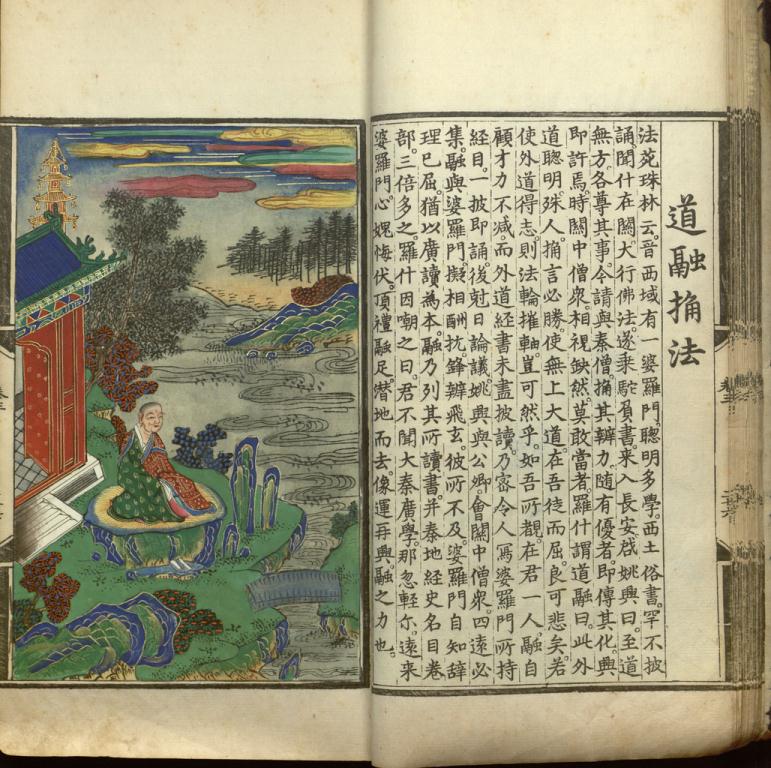 道融捔法
法苑珠林云。晉西域有一婆羅門。聰明多學。西土俗書。罕不披
誦。聞什在關。大行佛法。遂乘駝負書。來入長安。啟姚興曰。至道
無方。各尊其事。今請與秦僧捔其辯力。隨有優者。即傳其化。興
即許焉。時關中僧衆相視缺然。莫敢當者。羅什謂道融曰。此外
道聰明殊人。捔言必勝。使無上大道在吾徒而屈。良可悲矣。若
使外道得志。則法輪摧軸。豈可然乎。如吾所覩。在君一人。融自
顧才力不減。而外道經書未盡披讀。乃密令人寫婆羅門所持
經目。一披即誦。後尅日論議。姚興與公卿會關中僧衆。四遠必
集。融與婆羅門擬相酬抗。鋒辯飛玄。彼所不及。婆羅門自知辭
理已屈。猶以廣讀為本。融乃列其所讀書。并秦地經史名目卷
部。三倍多之。羅什因嘲之曰。君不聞大秦廣學。那忽輕尒。遠來
婆羅門心媿悔伏。頂禮融足。潛地而去。像運再興。融之力也。